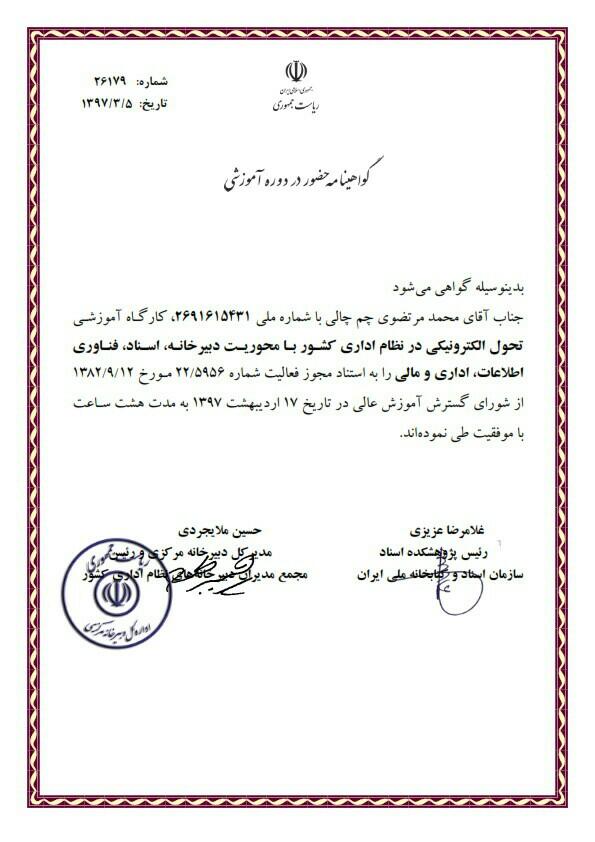 شماره: ۲۶۱۷۹
تاریخ: ۱۳۹۷/۳/۵
جمهوری اسلامی ایران
ریاست جمهوری
گواهینامه حضور در دوره آموزشی
بدینوسیله گواهی می‌شود
جناب آقای محمد مرتضوی چم چالی با شماره ملی ۲۶۹۱۶۱۵۴۳۱، کارگاه آموزشی
تحول الکترونیکی در نظام اداری کشور با محوریت دبیرخانه، اسناد، فناوری
اطلاعات، اداری و مالی را به استناد مجوز فعالیت شماره ۲۲/۵۹۵۶ مورخ ۱۳۸۲/۹/۱۲
از شورای گسترش آموزش عالی در تاریخ ۱۷ اردیبهشت ۱۳۹۷ به مدت هشت ساعت
با موفقیت طی نموده‌اند.
غلامرضا عزیزی
رئیس پژوهشکده اسناد
سازمان اسناد و کتابخانه ملی ایران
حسین ملایجردی
مدیرکل دبیرخانه مرکزی و رئیس
مجمع مدیران دبیرخانه‌های نظام اداری کشور
ریاست جمهوری
اداره کل دبیرخانه مرکزی